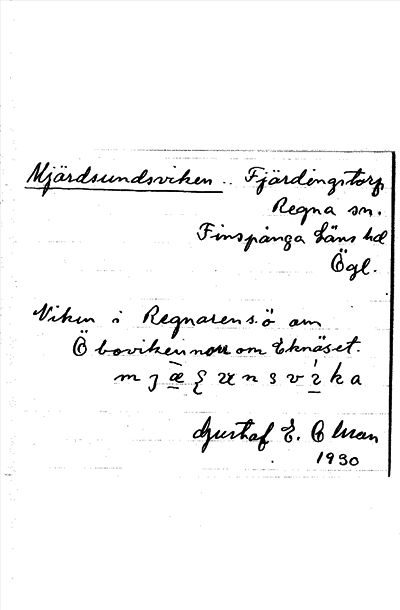 Mjärdsundsviken .. Fjärdingstorp
Regna sn.
Finspånga läns hd
Ögl.
Viken i Regnaren s.ö om
Öboviken norr om Eknäset.
Gustaf E. Olman
1930